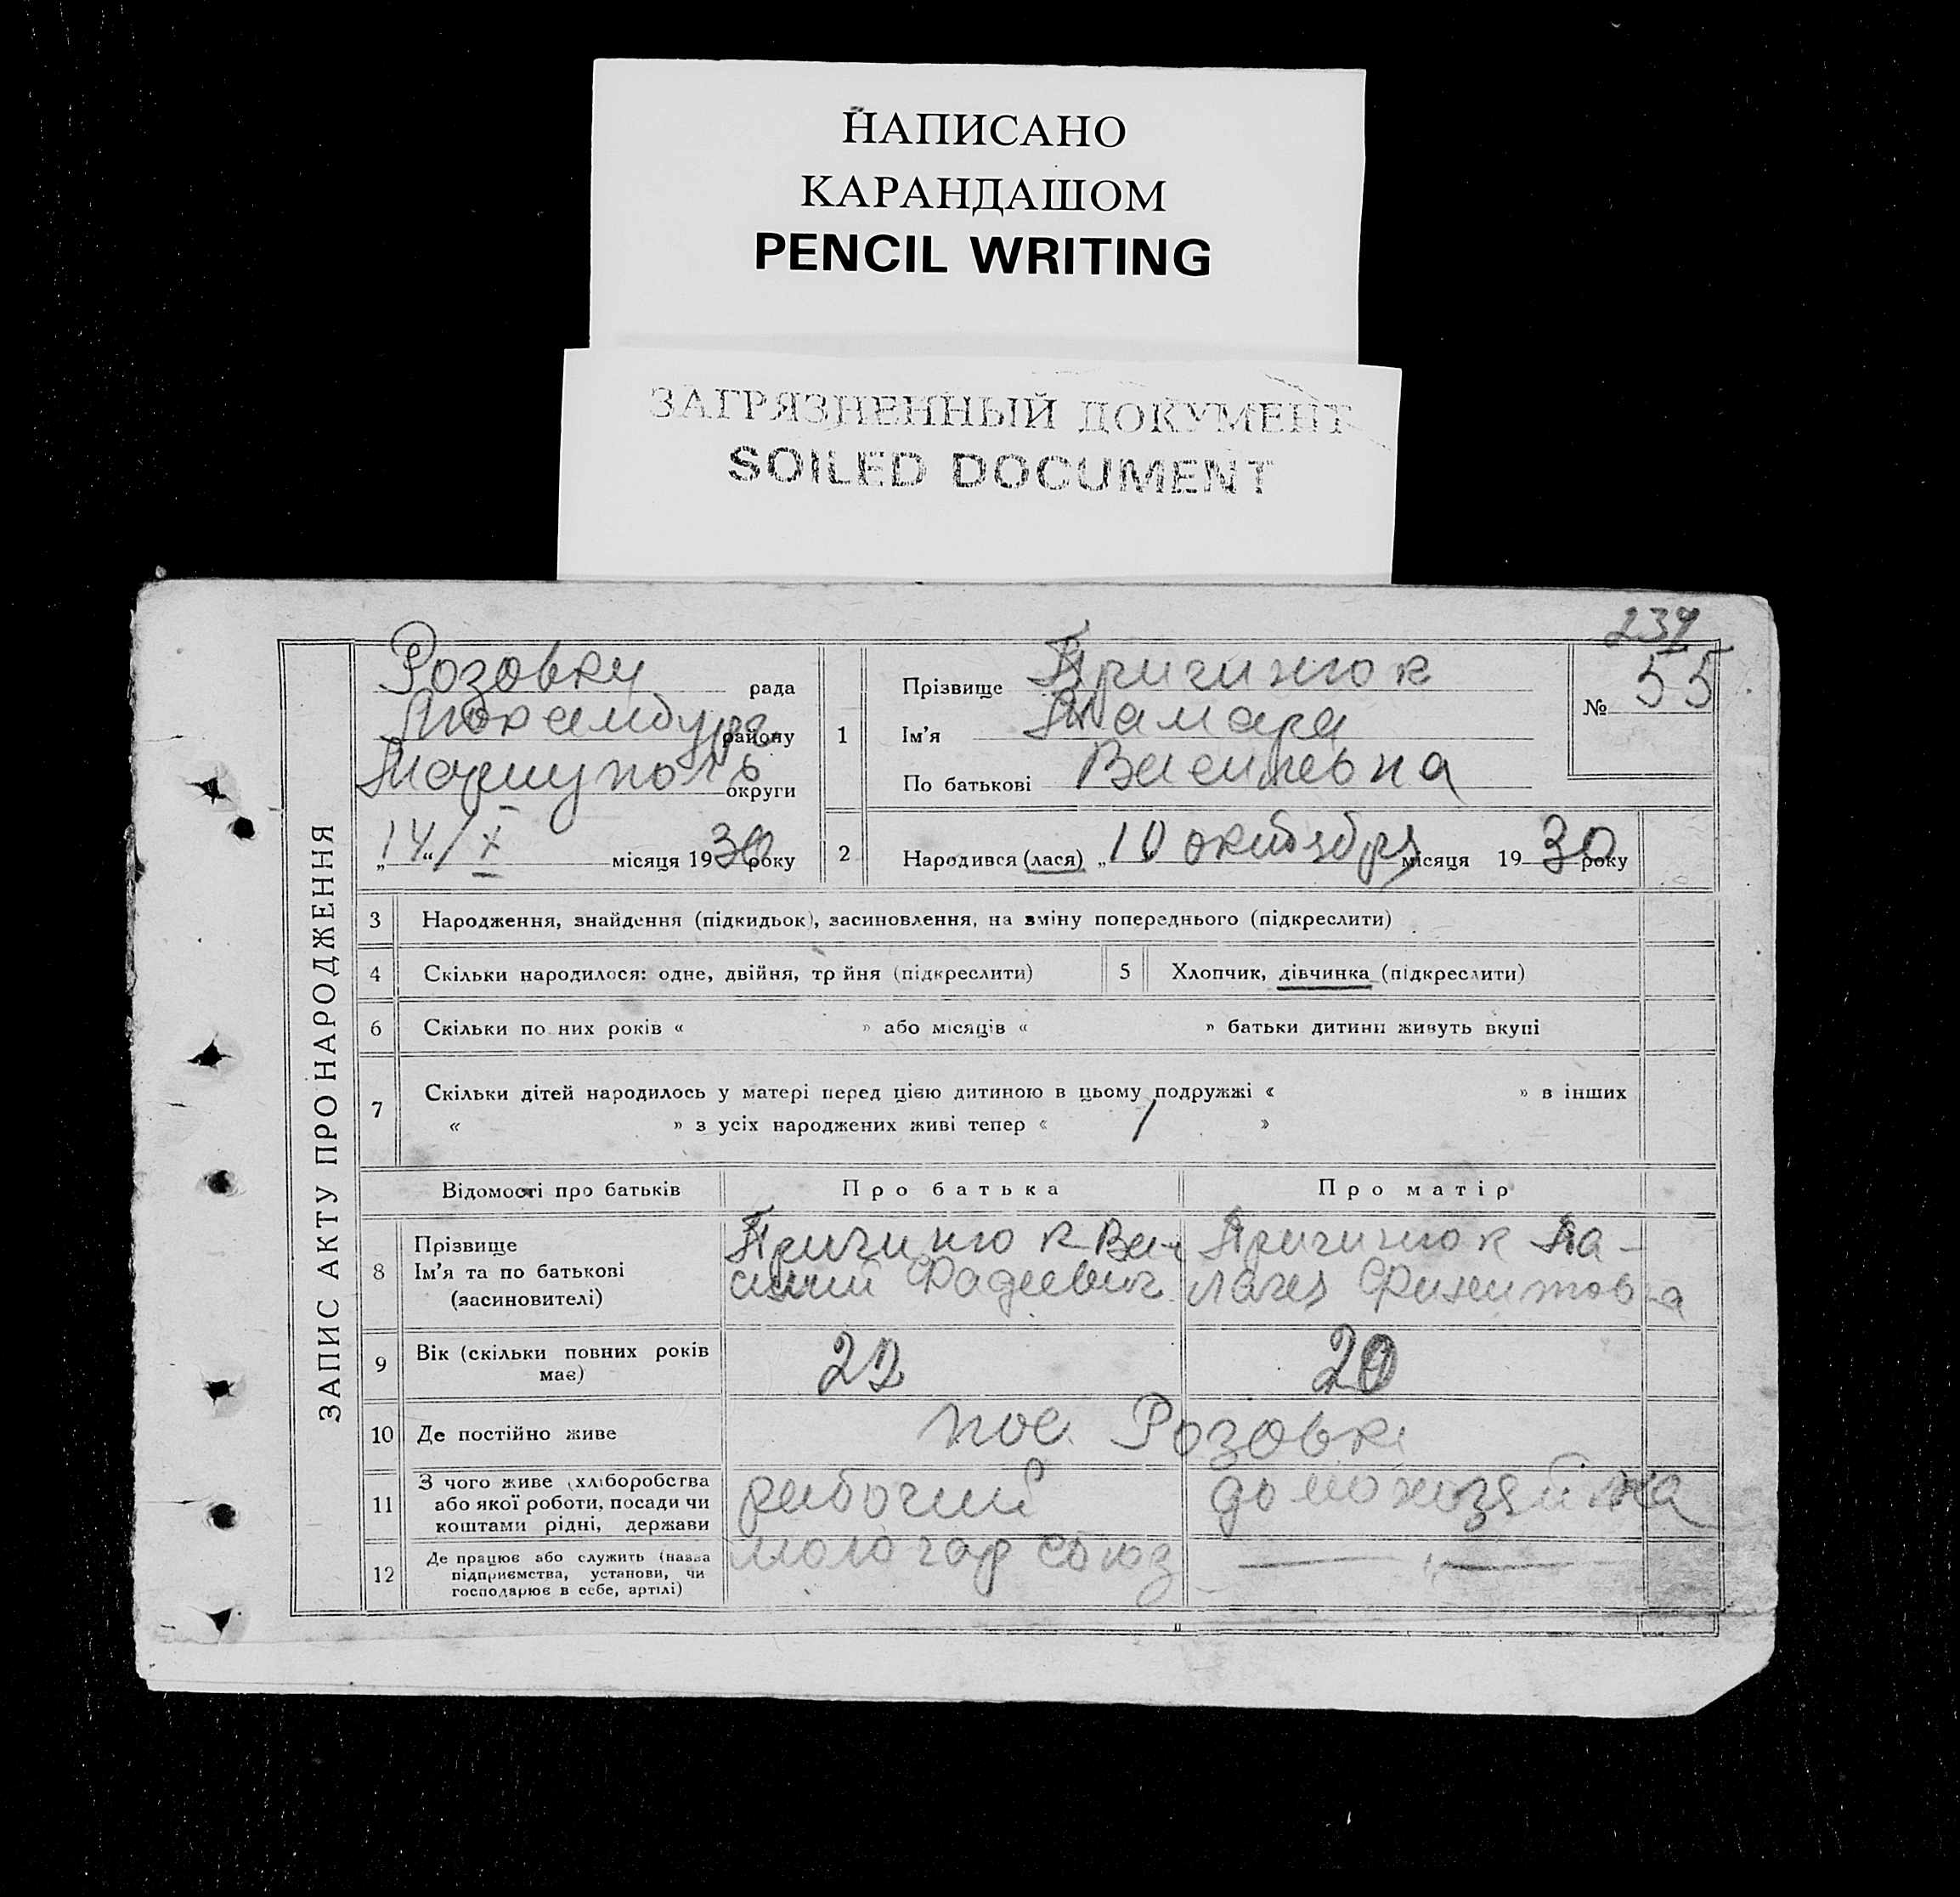 НАПИСАНО
КАРАНДАШОМ
PENCIL WRITING
ЗАГРЯЗНЕННЫЙ ДОКУМЕНТ
SOILED DOCUMENT
ЗАПИС АКТУ ПРО НАРОДЖЕННЯ
Розовку рада
Люксембург району
Мариуполь округи
„14“/X місяця 1930 року
1
Прізвище Причинюк
Ім’я Тамара
По батькові Васильевна
№ 55
2
Народився (лася) „10 октября місяця 1930 року
3 Народження, знайдення (підкидьок), засиновлення, на зміну попереднього (підкреслити)
4 Скільки народилося: одне, двійня, тр йня (підкреслити)
5 Хлопчик, дівчинка (підкреслити)
6 Скільки по них років « » або місяців « » батьки дитини живуть вкупі
7 Скільки дітей народилось у матері перед цією дитиною в цьому подружжі « » в інших
« » з усіх народжених живі тепер « / »
Відомості про батьків Про батька Про матір
8 Прізвище
Ім’я та по батькові
(засиновителі)
Причинюк Ва-
силий Фадеевич
Причинюк Па-
9 Вік (скільки повних років
має)
22 20
10 Де постійно живе пос. Розовка
11 З чого живе (хліборобства
або якої роботи, посади чи
коштами рідні, держави
рабочий домохозяйка
12 Де працює або служить (назва
підприємства, установи, чи
господарює в себе, артілі)
союз — „ —